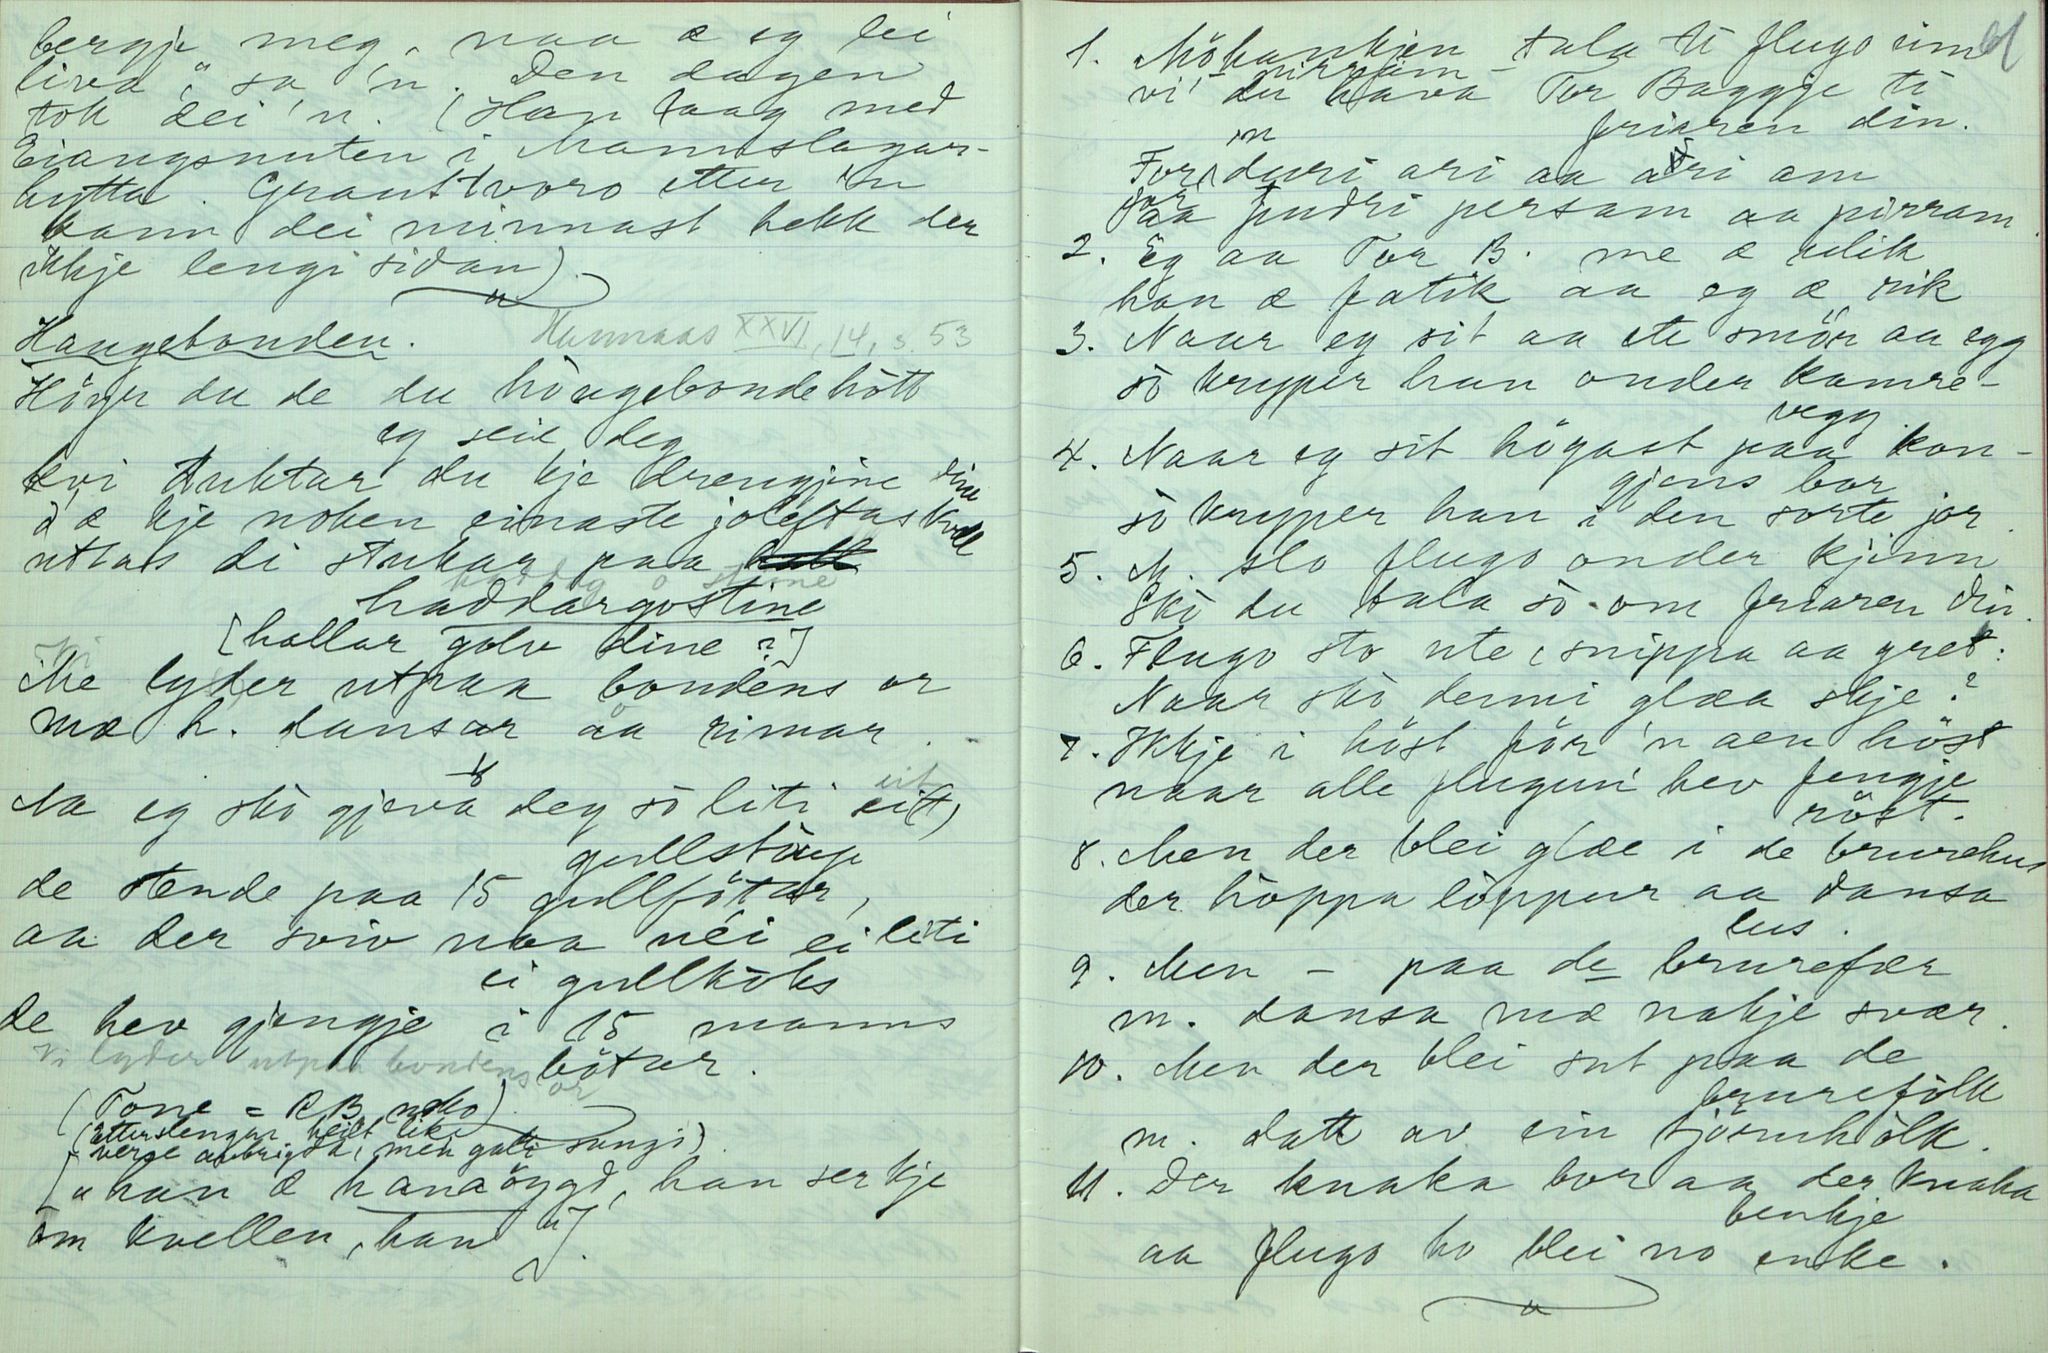 bergje meg, naa æ eg lei
livd," sa 'n. Den dagen
tok dei 'n. (Han laag med
Eiangsnuten i Mannslagar-
hytta. Grautlvoro etter 'n
kann dei minnast hekk der
ikkje lengi sidan).
Haugebonden. Hannaas XXVI, 14, s. 53
Höyr du de du häugebondehött
eg seie deg
kvi tuktar du kje drengjine dine
d'æ kje noken einaste joleftaskvell
uttas di stukar paa
haddargostine
[hallar golv dine?]
Me lyder utpaa bondens or
mæ h. dansar aa rimar.
Aa eg sko gjeva deg so liti eit
gullstaup
de stende paa 15 gullfötar,
aa der sviv naa nei ei liti
ei gullkoks
de hev gjengje i 15 manns
bötur.
Vi lyder utpaa bondens or
(Tone = R B, noko)
(etterslengar heilt like
verse avbrigda, men gali sungi).
["han æ hanaöygd, han ser kje
om kvellen, han"].
61
1. Möhankjen tala ti flugo sin
pirream
vi' du hava Tor Baggje ti
friaren din.
For duri ari aa ari am
for
aa fudri persam aa pirram
2. Eg aa Tor B. me æ ulik
han æ fatik aa eg æ rik
3. Naar eg sit aa ete smör aa egg
so kryper han onder kamre-
vegg
4. Naar eg sit högast paa kon-
gjens bor
so kryper han i den sorte jor.
5. M. slo flugo onder kjinn
Sko du tala so om friaren din.
6. Flugo sto ute, snippa aa gret:
Naar sko dermi glæa skje?
7. Ikkje i höst för 'n aen höst
naar alle flugun' hev fengje
röst.
8. Men der blei glæe i de brurehus
der höppa löppur aa dansa
lus.
9. Men – paa de brurefær
m. dansa mæ nakje svær.
10. Men der blei sut paa de
brurefolk
m. datt av ein tjörnholk.
11. Der knaka bor aa der knaka
benkje
aa flugo ho blei no enke.